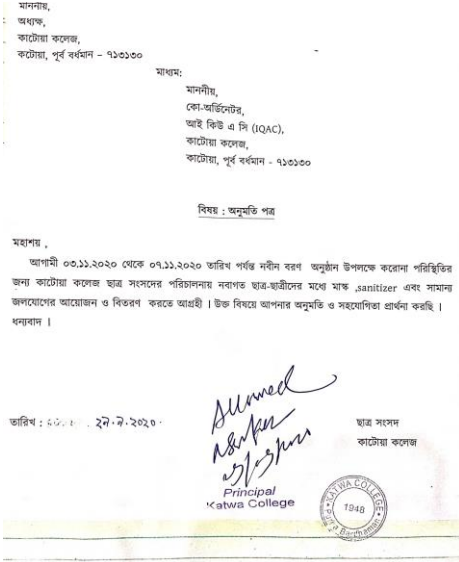 মাননীয়,
অধ্যক্ষ,
কাটোয়া কলেজ,
কটোয়া, পূর্ব বর্ধমান – ৭১৩১৩০
মাধ্যম:
মাননীয়,
কো-অর্ডিনেটর,
আই কিউ এ সি (IQAC),
কাটোয়া কলেজ,
কাটোয়া, পূর্ব বর্ধমান - ৭১৩১৩০
বিষয় : অনুমতি পত্র
মহাশয় ,
আগামী ০৩.১১.২০২০ থেকে ০৭.১১.২০২০ তারিখ পর্যন্ত নবীন বরণ অনুষ্ঠান উপলক্ষে করোনা পরিস্থিতির
জন্য কাটোয়া কলেজ ছাত্র সংসদের পরিচালনায় নবাগত ছাত্র-ছাত্রীদের মধ্যে মাস্ক ,sanitizer এবং সামান্য
জলযোগের আয়োজন ও বিতরণ করতে আগ্রহী । উক্ত বিষয়ে আপনার অনুমতি ও সহযোগিতা প্রার্থনা করছি ।
ধন্যবাদ ।
Allowed
তারিখ :
ছাত্র সংসদ
কাটোয়া কলেজ
Principal
Katwa College
KATWA COLLEGE
1948
Purba Bardhaman